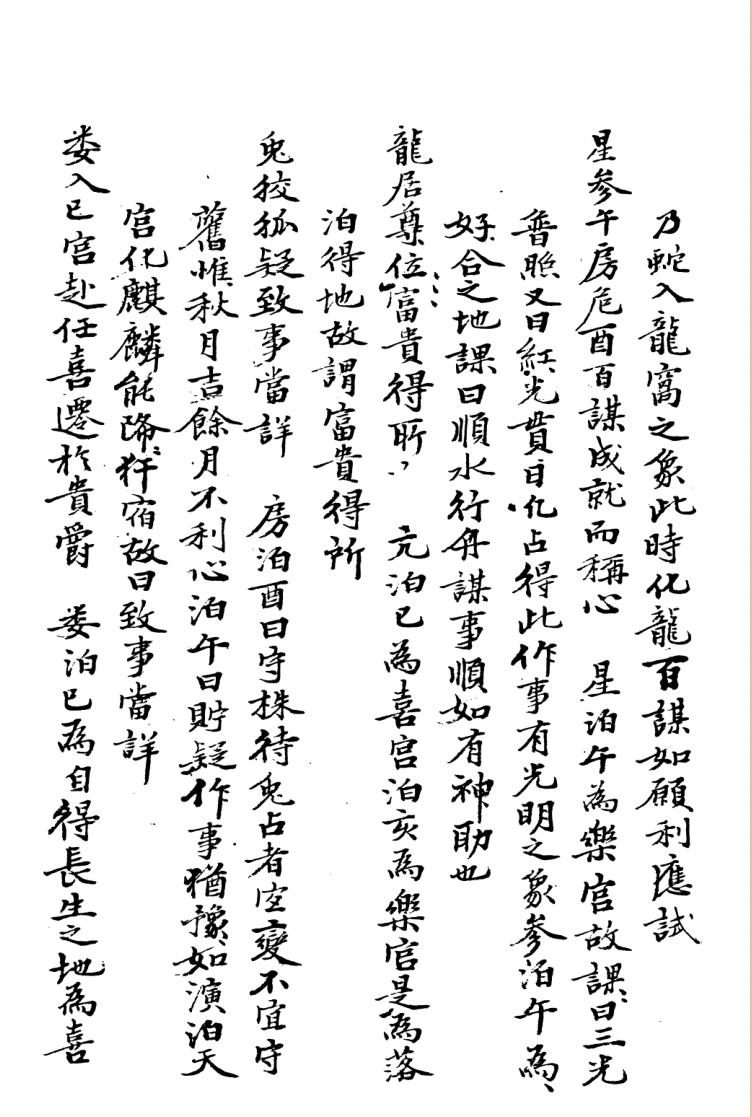 乃蛇入龍窩之象此時化龍百謀如願利應試
星參午房危酉百謀成就而稱心　星泊午為樂官故課曰三光
普照又曰紅光賁日化占得此作事有光明之象參泊午為
好合之地課曰順水行舟謀事順如有神助也
龍居尊位富貴得所　亢泊巳為喜宮泊亥為樂官是為落
泊得地故謂富貴得所
兔狡狐疑致事當詳　房泊酉曰守株待兔占者宜變不宜守
舊惟秋月吉餘月不利心泊午曰貯疑作事猶豫如演泊天
宮化麒麟能降犴宿故曰致事當詳
婁入巳宮赴任喜遷於貴爵　婁泊巳為自得長生之地為喜